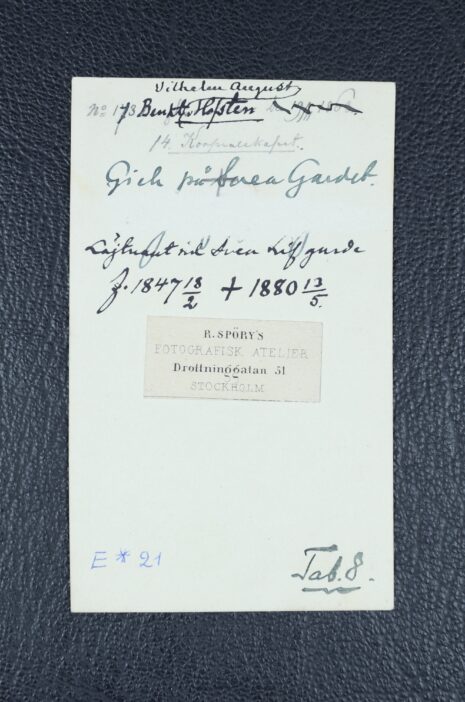 Vilhelm August
No 173 Benkt v. Hofsten
14. Korpralskapet.
Gick på Svea Gardet.
Löjtnant vid Svea Lifgarde
f. 1847 18/2 + 1880 13/5.
R. SPÖRY'S
FOTOGRAFISK ATELIER
Drottninggatan 51
STOCKHOLM
E * 21
Tab. 8.